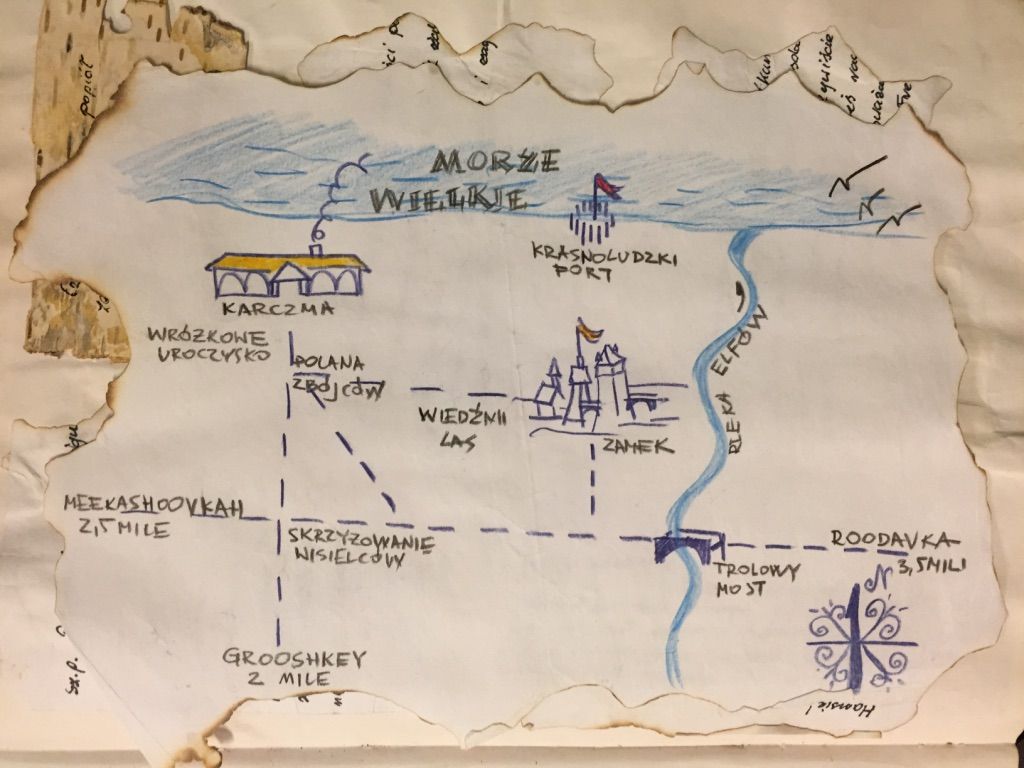 popiół
MORZE
WIELKIE
KRASNOLUDZKI
PORT
KARCZMA
WRÓŻKOWE
UROCZYSKO
POLANA
ZBÓJCÓW
RZEKA ELFÓW
WIEDŹMI
LAS
ZAMEK
MEEKASHOOVKAH
2,5 MILE
SKRZYŻOWANIE
WISIELCÓW
ROODAVKA
3,5 MILI
TROLOWY
MOST
N
GROOSHKEY
2 MILE